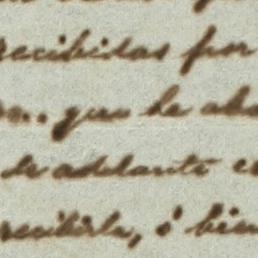 recibidas por
que le abo
de adelante
recibirla, ó bien